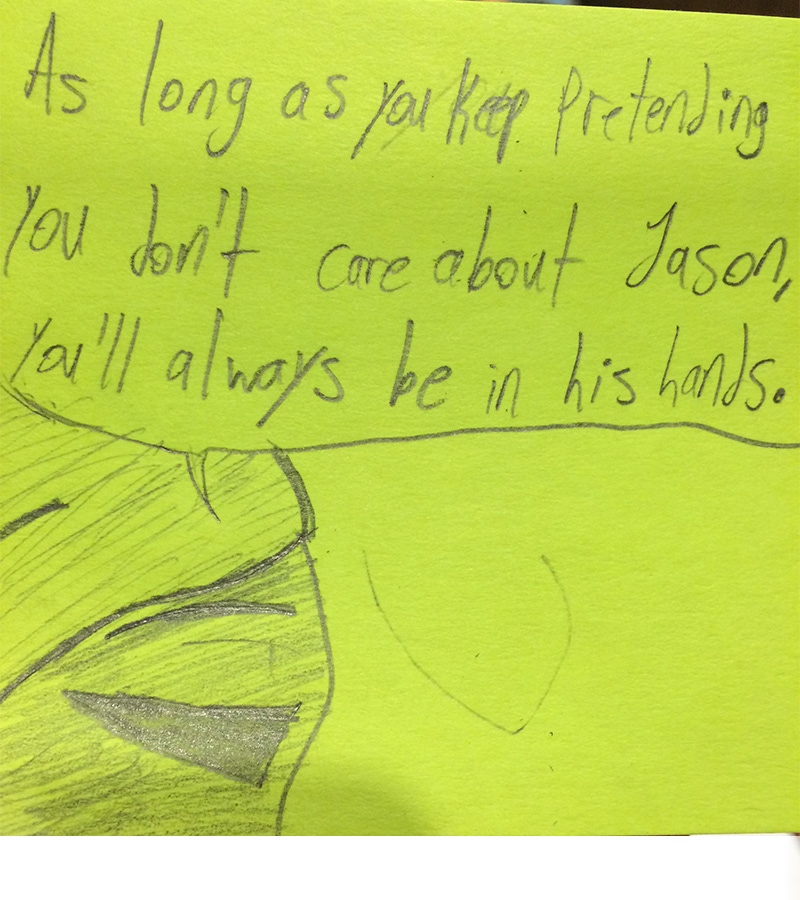 As long as you keep Pretending
you don't care about Jason,
you'll always be in his hands.